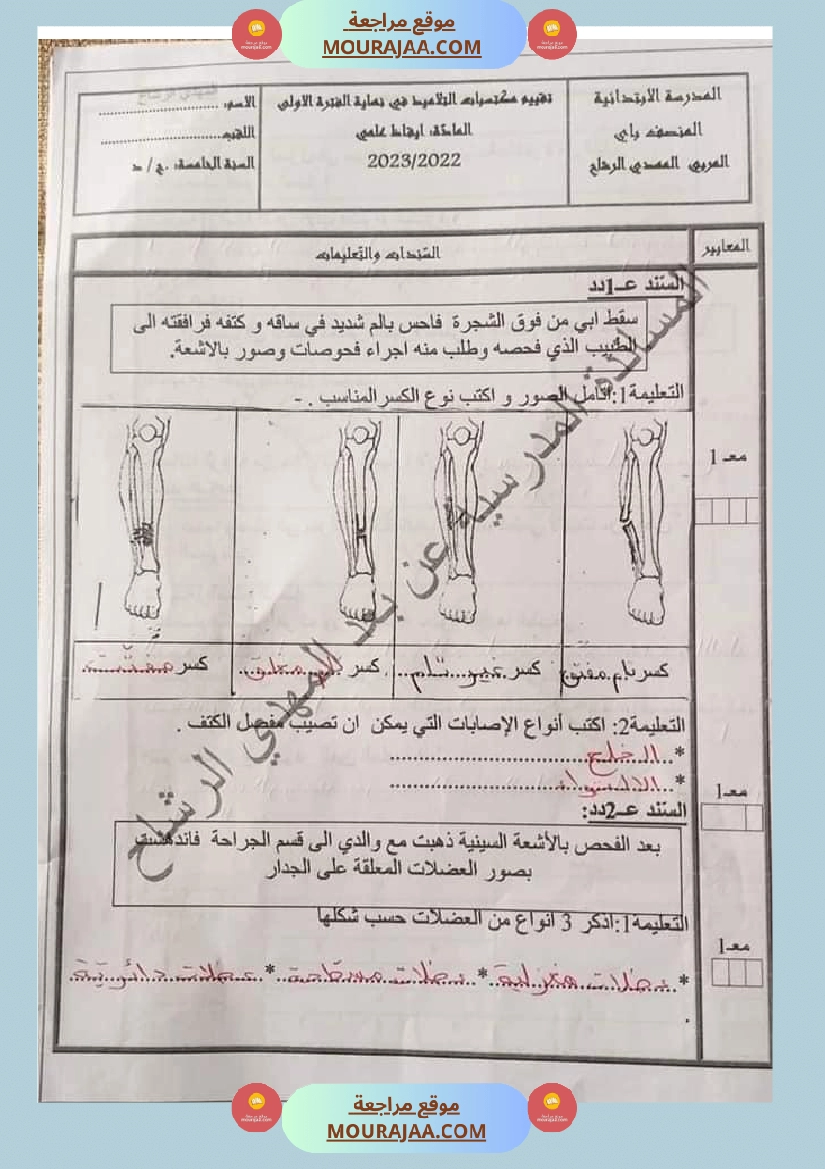 موقع مراجعة
MOURAJAA.COM
المدرسة الابتدائية
المنصف باي
المربي المهدي الرشاح
تقييم مكتسبات التلاميذ في نهاية الفترة الاولى
المادة: ايقاظ علمي
2023/2022
الاسم: ..............................
اللقب: ..............................
السنة الخامسة: ج / د
المعايير
السندات والتعليمات
السند عـ1ـدد
سقط ابي من فوق الشجرة فاحس بالم شديد في ساقه و كتفه فرافقته الى
الطبيب الذي فحصه وطلب منه اجراء فحوصات وصور بالاشعة.
التعليمة1:اتأمل الصور و اكتب نوع الكسر المناسب . -
معـ 1
كسر تام مفتوح
كسر غير تام
كسر تام مغلق
كسر مفتت
التعليمة2: اكتب أنواع الإصابات التي يمكن ان تصيب مفصل الكتف .
* الخلع
* الالتواء
معـ1
السند عـ2ـدد:
بعد الفحص بالأشعة السينية ذهبت مع والدي الى قسم الجراحة فاندهشت
بصور العضلات المعلقة على الجدار
التعليمة1:اذكر 3 أنواع من العضلات حسب شكلها
معـ1
* عضلات مغزلية * عضلات مسطحة * عضلات دائرية
المساندة المدرسية عن بعد المهدي الرشاح
موقع مراجعة
MOURAJAA.COM